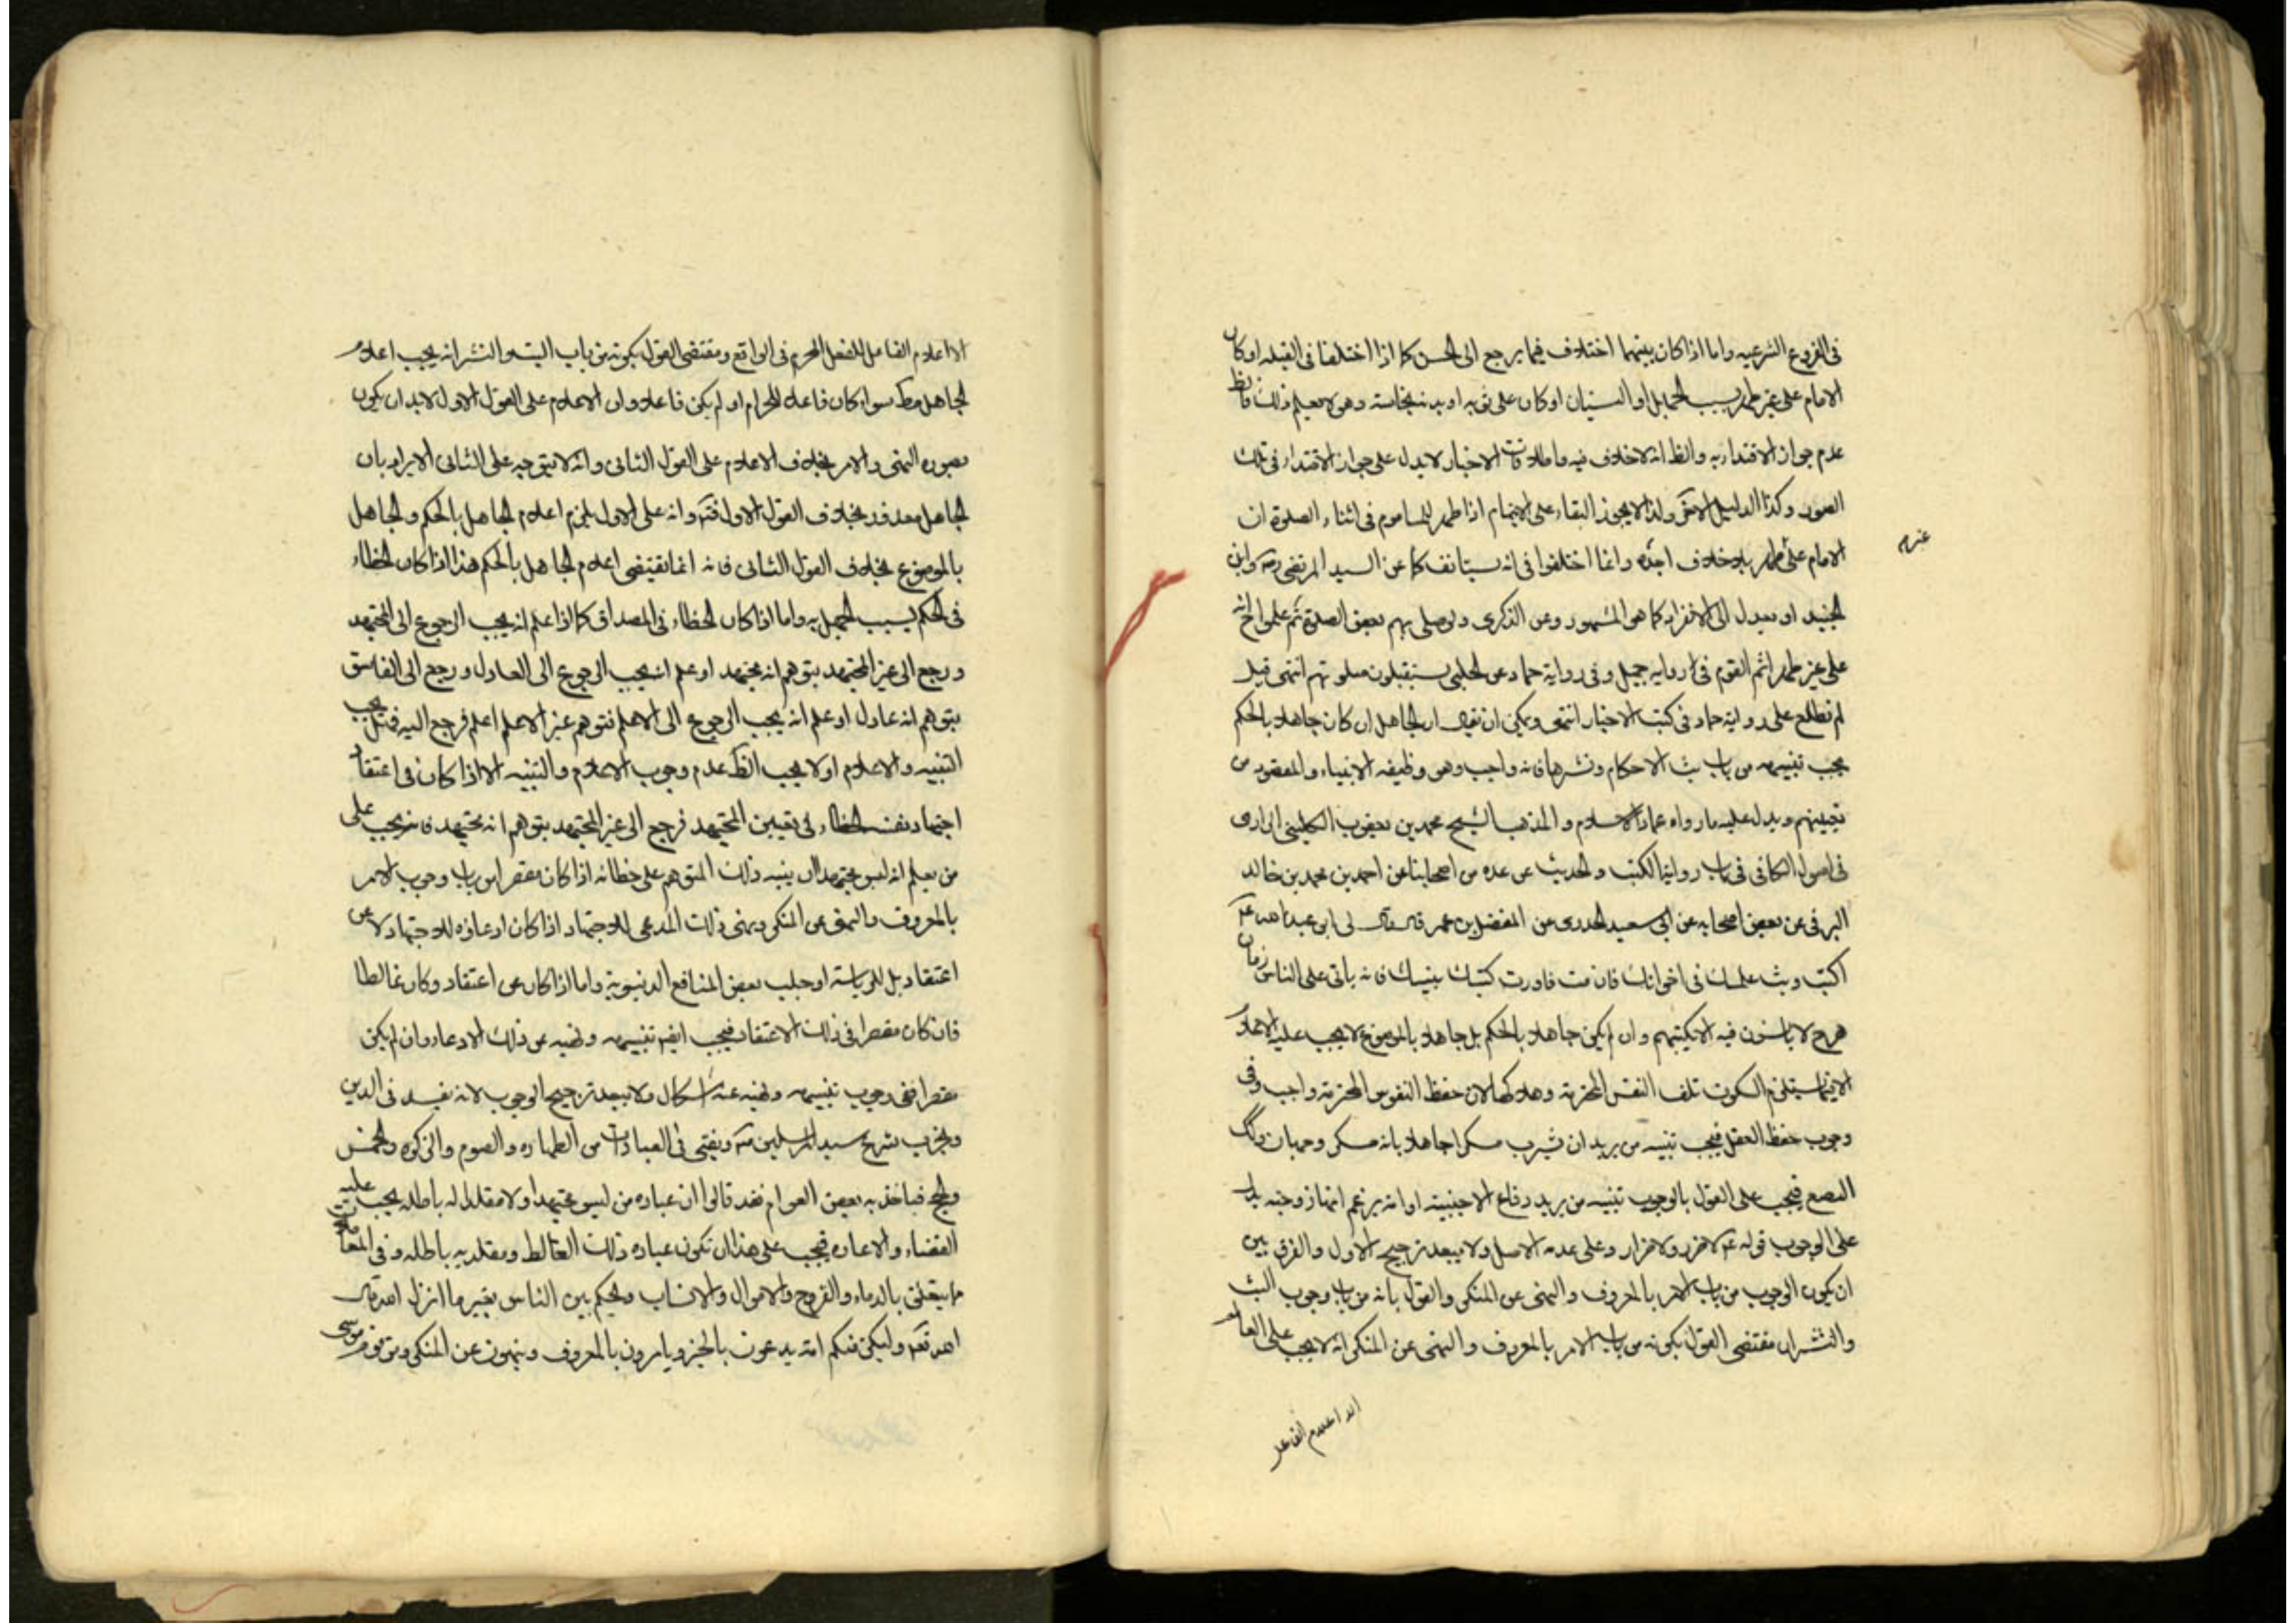 فى الفروع الشرعيه واما اذا كان بينهما اختلاف فيما يرجع الى الحس كما اذا اختلفا فى القبله او كان
الامام على غير طهر بسبب الجهل او النسيان او كان على ثوبه او بدنه نجاسة وهو لا يعلم ذلك فالظ
عدم جواز الاقتداء به والظ انه لا خلاف فيه واطلاقات الاخبار لا يدل على جواز الاقتداء فى تلك
الصور وكذا الدليل ولذا لا يجوز البقاء على الايتمام اذا ظهر للماموم فى اثناء الصلوة ان
الامام على غير طهر بلا خلاف اجده وانما اختلفوا فى انه يستانف كما عن السيد المرتضى ره وابن
الجنيد او يعدل الى الانفراد كما هو المشهور وعن الذكرى ولو صلى بهم بعض الصلوة ثم علموا ح انه
على غير طهر اتم القوم فى رواية جميل وفى رواية حماد عن الحلبى يستقبلون صلوتهم انتهى قيل
لم نطلع على رواية حماد فى كتب الاخبار انتهى ويمكن ان يقال ان الجاهل ان كان جاهلا بالحكم
يجب تنبيهه من باب بث الاحكام ونشرها فانه واجب وهو وظيفه الانبياء والمقصود من
تعيينهم ويدل عليه ما رواه عماد الاسلام و المذهب الشيخ محمد بن يعقوب الكلينى الرازى
فى اصول الكافى فى باب رواية الكتب والحديث عن عده من اصحابنا عن احمد بن محمد بن خالد
البرقى عن بعض اصحابه عن ابى سعيد الخدرى عن المفضل بن عمر قال قال لى ابى عبد الله ع
اكتب وبث علمك فى اخوانك فان مت فاورث كتبك بنيك فانه ياتى على الناس زمان
هرج لا يانسون فيه الا بكتبهم وان لم يكن جاهلا بالحكم بل جاهلا بالموضوع لا يجب عليه الاعلام
الا فيما يستلزم السكوت تلف النفس المحترمة وهلاكها لان حفظ النفوس المحترمة واجب وفى
وجوب حفظ العقل فيجب تنبيه من يريد ان يشرب مسكرا جاهلا بانه مسكر وجهان وكك
البضع فيجب على القول بالوجوب تنبيه من يريد وقاع الاجنبية او انه يزعم انها زوجته يدل
على الوجوب قوله ع لا ضرر ولا ضرار وعلى عدمه الاصل ولا يبعد ترجيح الاول والفرق بين
ان يكون الوجوب من باب الامر بالمعروف والنهى عن المنكر والقول بانه من باب وجوب البث
والنشر ان مقتضى القول بكونه من باب الامر بالمعروف والنهى عن المنكر انه لا يجب على العالم
الا اعلام الفاعل
غير
الا اعلام الفاعل للفعل المحرم فى الواقع ومقتضى القول بكونه من باب البث والنشر انه يجب اعلام
الجاهل مط سواء كان فاعلا للحرام او لم يكن فاعلا وان الاعلام على القول الاول لابد ان يكون
بصورة النهى والامر بخلاف الاعلام على القول الثانى وانه لا يتوجه على الثانى الايراد بان
الجاهل معذور بخلاف القول الاول وانه على الاول يلزم اعلام الجاهل بالحكم والجاهل
بالموضوع بخلاف القول الثانى فانه انما يقتضى اعلام الجاهل بالحكم هذا اذا كان الخطاء
فى الحكم بسبب الجهل به واما اذا كان الخطاء فى المصداق كما اذا علم انه يجب الرجوع الى المجتهد
ورجع الى غير المجتهد بتوهم انه مجتهد او علم انه يجب الرجوع الى العادل ورجع الى الفاسق
بتوهم انه عادل او علم انه يجب الرجوع الى الاعلم فتوهم غير الاعلم اعلم فرجع اليه فهل يجب
التنبيه والاعلام او لا يجب الظ عدم وجوب الاعلام والتنبيه الا اذا كان فى اعتقاد
اجتهاد نفسه الخطاء فى تعيين المجتهد فرجع الى غير المجتهد بتوهم انه مجتهد فانه يجب على
من يعلم انه ليس بمجتهد ان ينبه ذلك المتوهم على خطائه اذا كان مقصرا من باب وجوب الامر
بالمعروف والنهى عن المنكر وينهى ذلك المدعى للاجتهاد اذا كان ادعاؤه للاجتهاد لا عن
اعتقاد بل للرياسة او جلب بعض المنافع الدنيوية واما اذا كان عن اعتقاد وكان غالطا
فان كان مقصرا فى ذلك الاعتقاد فيجب ايضا تنبيهه ونهيه عن ذلك الادعاء وان لم يكن
مقصرا ففى وجوب تنبيهه ونهيه عنه اشكال ولا يبعد ترجيح الوجوب لانه يفسد فى الدين
ويخرب شرع سيد المرسلين ص ويفتى فى العبادات من الطهاره والصوم والزكوة والخمس
والحج فياخذ به بعض العوام فقد قالوا ان عباده من ليس مجتهدا ولا مقلدا له باطله يجب عليه
القضاء والاعاده فيجب على هذا ان تكون عباده ذلك الغالط ومقلديه باطله وفى المعاملات
ما يتعلق بالدماء والفروج والاموال والانساب ويحكم بين الناس بغير ما انزل الله قال
الله تعالى ولتكن منكم امة يدعون بالخير ويامرون بالمعروف وينهون عن المنكر